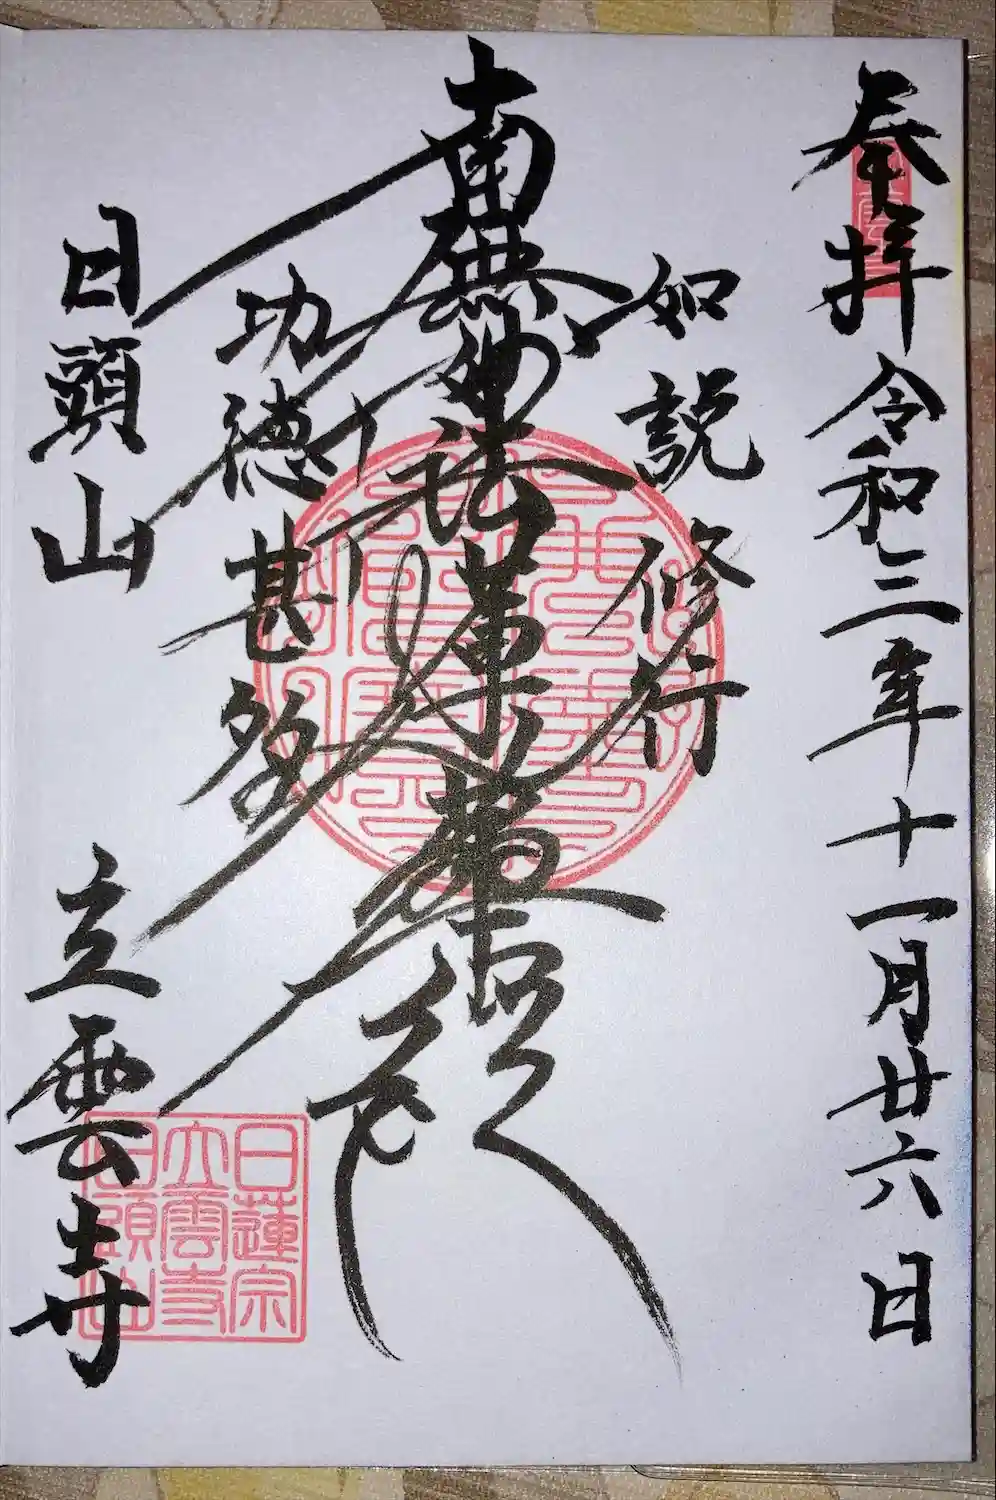 奉拝 令和三年十一月廿六日
如説修行
南無妙法蓮華経
功徳甚多
日頭山 立雲寺
日蓮宗
立雲寺
日頭山